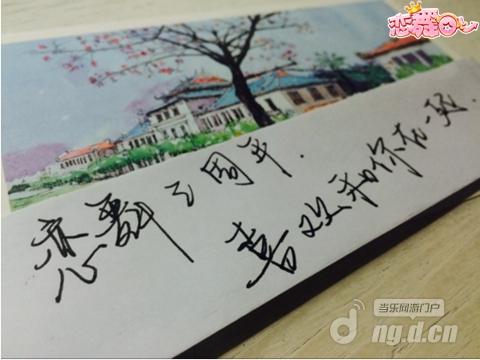 恋舞OL
恋舞3周年.
喜欢和你在一起.
当乐网游门户
d.cn
ng.d.cn